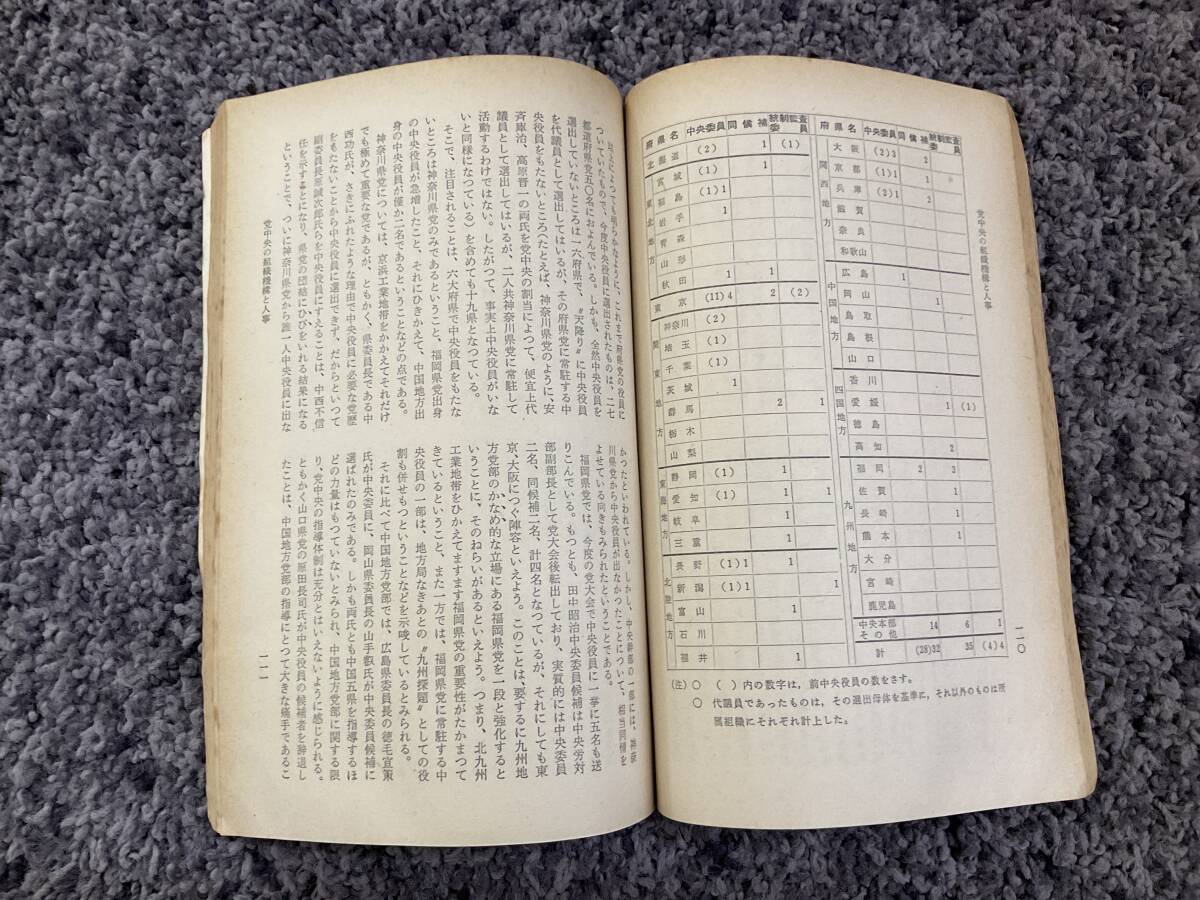 党中央の組織機構と人事
一一〇
府県名 中央委員 同候補 統制監査委員
北海道 (2) 1 (1)
東北地方
宮城 (1) 1
福島 (1)1
岩手 1
青森
山形
秋田 1 1
東京 (11)4 2 (2)
関東地方
神奈川 (2)
埼玉 (1)
千葉 (1)
茨城 1
群馬 2 1
栃木
山梨
東海地方
静岡 (1) 1
愛知 (1) 1 1
岐阜 1
三重 1
北陸地方
長野 (1)1 1
新潟 (1)1 1
富山 1
石川
福井 1
府県名 中央委員 同候補 統制監査委員
関西地方
大阪 (2)3 2
京都 (1)1 1
兵庫 (2)1 1
滋賀
奈良
和歌山
中国地方
広島 1
岡山 1
鳥取
島根
山口
四国地方
香川
愛媛 1 (1)
徳島
高知 2
九州地方
福岡 2 3
佐賀 1
長崎 1
熊本 1
大分
宮崎
鹿児島
中央本部その他 14 6 1
計 (28)32 35 (4)4
(注)○ ( )内の数字は,前中央役員の数をさす。
○ 代議員であったものは,その選出母体を基準に,それ以外のものは所
属組織にそれぞれ計上した。
以上によつても明らかなように、これまで府県党の役員に
ついていたもので、今度中央役員に選出されたものは、二七
都道府県党五〇名におよんでいる。しかも、全然中央役員を
選出していないところは一六府県で、〝天降り〟に中央役員
を代議員として選出してはいるが、その府県党に常駐する中
央役員をもたないところ(たとえば、神奈川県党のように、安
斉庫治、高原晋一の両氏を党中央の割当によつて、便宜上代
議員として選出してはいるが、二人共神奈川県党に常駐して
活動するわけではない。したがつて、事実上中央役員がいな
いと同様になつている)を含めても十九県となつている。
そこで、注目されることは、六大府県で中央役員をもたな
いところは神奈川県党のみであるということ、福岡県党出身
の中央役員が急増したこと、それにひきかえて、中国地方出
身の中央役員が僅か二名であるということなどの点である。
神奈川県党については、京浜工業地帯をかかえてそれだけ
でも極めて重要な党であるが、ともかく、県委員長である中
西功氏が、さきにふれたような理由で中央役員に必要な党歴
をもたないことから中央役員に選出できず、だからといつて
副委員長原誠次郎氏らを中央役員にすえることは、中西不信
任を示すことになり、県党の団結にひびをいれる結果になる
ということで、ついに神奈川県党から誰一人中央役員に出な
かつたといわれている。しかし、中央幹部の一部には、神奈
川県党から中央役員が出なかつたことについて、相当同情を
よせている向きもみられたということである。
福岡県党では、今度の党大会で中央役員に一挙に五名も送
りこんでいる。もつとも、田中昭治中央委員候補は中央労対
部副部長として党大会後転出しており、実質的には中央委員
二名、同候補二名、計四名となつているが、それにしても東
京、大阪につぐ陣容といえよう。このことは、要するに九州地
方党部のかなめ的な立場にある福岡県党を一段と強化すると
いうことに、そのねらいがあるといえよう。つまり、北九州
工業地帯をひかえてますます福岡県党の重要性がたかまつて
きているということ、また一方では、福岡県党に常駐する中
央役員の一部は、地方局なきあとの〝九州探題〟としての役
割も併せもつということなどを示唆しているとみられる。
それに比べて中国地方党部では、広島県委員長の徳毛宜策
氏が中央委員に、岡山県委員長の山手叡氏が中央委員候補に
選ばれたのみである。しかも両氏とも中国五県を指導するほ
どの力量はもつていないとみられ、中国地方党部に関する限
り、党中央の指導体制は充分とはいえないように感じられる。
ともかく山口県党の原田長司氏が中央役員の候補者を辞退し
たことは、中国地方党部の指導にとつて大きな痛手であるこ
党中央の組織機構と人事
一一一